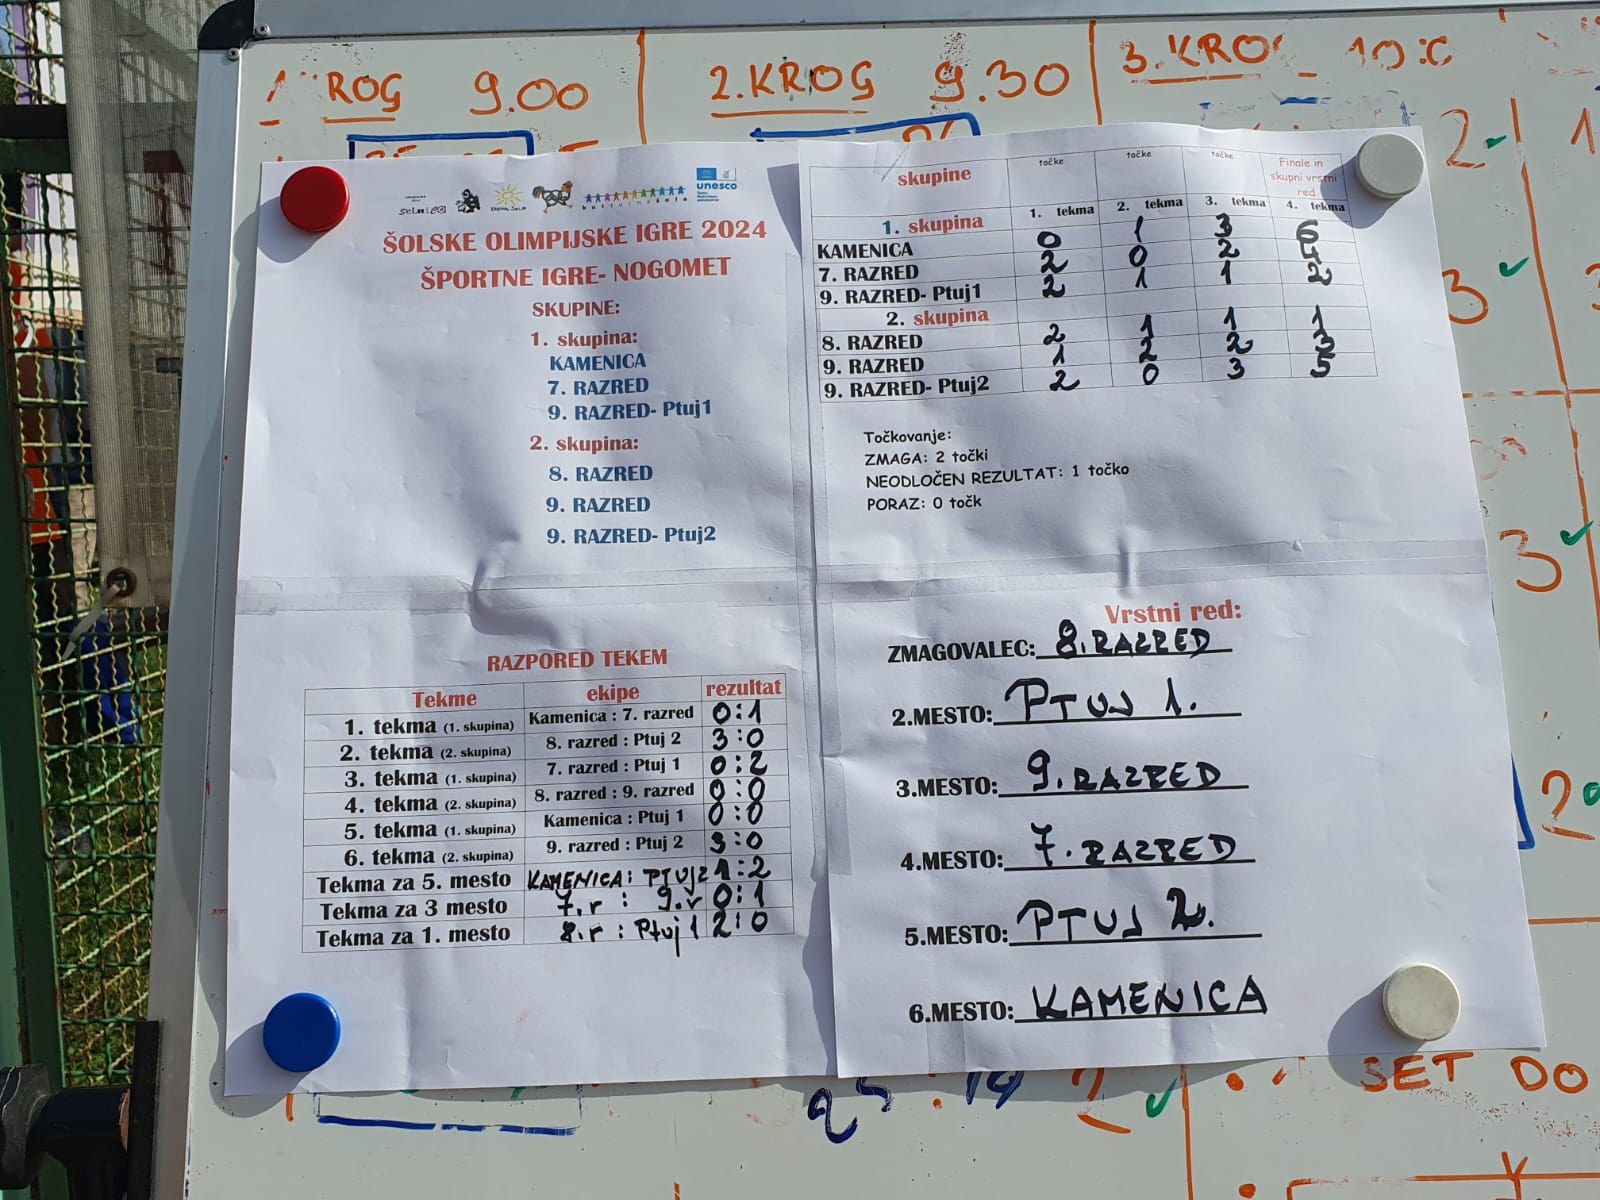 ROG 9.00
2.KROG 9.30
3.KRO
unesco
ŠOLSKE OLIMPIJSKE IGRE 2024
ŠPORTNE IGRE- NOGOMET
SKUPINE:
1. skupina:
KAMENICA
7. RAZRED
9. RAZRED- Ptuj1
2. skupina:
8. RAZRED
9. RAZRED
9. RAZRED- Ptuj2
RAZPORED TEKEM
Tekme ekipe rezultat
1. tekma (1. skupina) Kamenica : 7. razred 0:1
2. tekma (2. skupina) 8. razred : Ptuj 2 3:0
3. tekma (1. skupina) 7. razred : Ptuj 1 0:2
4. tekma (2. skupina) 8. razred : 9. razred 0:0
5. tekma (1. skupina) Kamenica : Ptuj 1 0:0
6. tekma (2. skupina) 9. razred : Ptuj 2 3:0
Tekma za 5. mesto KAMENICA: PTUJ2 1:2
Tekma za 3 mesto 7.r : 9.r 0:1
Tekma za 1. mesto 8.r : Ptuj 1 2:0
skupine točke točke točke Finale in skupni vrstni red
1. tekma 2. tekma 3. tekma 4. tekma
1. skupina
KAMENICA 0 1 3 6
7. RAZRED 2 0 2 4
9. RAZRED- Ptuj1 2 1 1 2
2. skupina
8. RAZRED 2 1 1 1
9. RAZRED 1 2 2 3
9. RAZRED- Ptuj2 2 0 3 5
Točkovanje:
ZMAGA: 2 točki
NEODLOČEN REZULTAT: 1 točko
PORAZ: 0 točk
Vrstni red:
ZMAGOVALEC: 8. RAZRED
2.MESTO: PTUJ 1.
3.MESTO: 9. RAZRED
4.MESTO: 7. RAZRED
5.MESTO: PTUJ 2.
6.MESTO: KAMENICA
2
3
3
2
25 : 19 2
SET DO